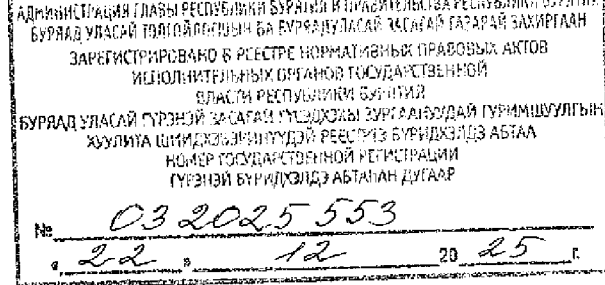 АДМИНИСТРАЦИЯ ГЛАВЫ РЕСПУБЛИКИ БУРЯТИЯ И ПРАВИТЕЛЬСТВА РЕСПУБЛИКИ БУРЯТИЯ
БУРЯАД УЛАСАЙ ТОЛГОЙЛОГШЫН БА БУРЯАД УЛАСАЙ ЗАСАГАЙ ГАЗАРАЙ ЗАХИРГААН
ЗАРЕГИСТРИРОВАНО В РЕЕСТРЕ НОРМАТИВНЫХ ПРАВОВЫХ АКТОВ
ИСПОЛНИТЕЛЬНЫХ ОРГАНОВ ГОСУДАРСТВЕННОЙ
ВЛАСТИ РЕСПУБЛИКИ БУРЯТИЯ
БУРЯАД УЛАСАЙ ГҮРЭНЭЙ ЗАСАГАЙ ГҮЙСЭДХЭХЫ ЗУРГААНУУДАЙ ГУРИМШУУЛГЫН
ХУУЛИТА ШИИДХЭБЭРИНҮҮДЭЙ РЕЕСТРТЭ БҮРИДХЭЛДЭ АБТАА
НОМЕР ГОСУДАРСТВЕННОЙ РЕГИСТРАЦИИ
ГҮРЭНЭЙ БҮРИДХЭЛДЭ АБТАҺАН ДУГААР
№ 03 2025 553
« 22 » 12 20 25 г.